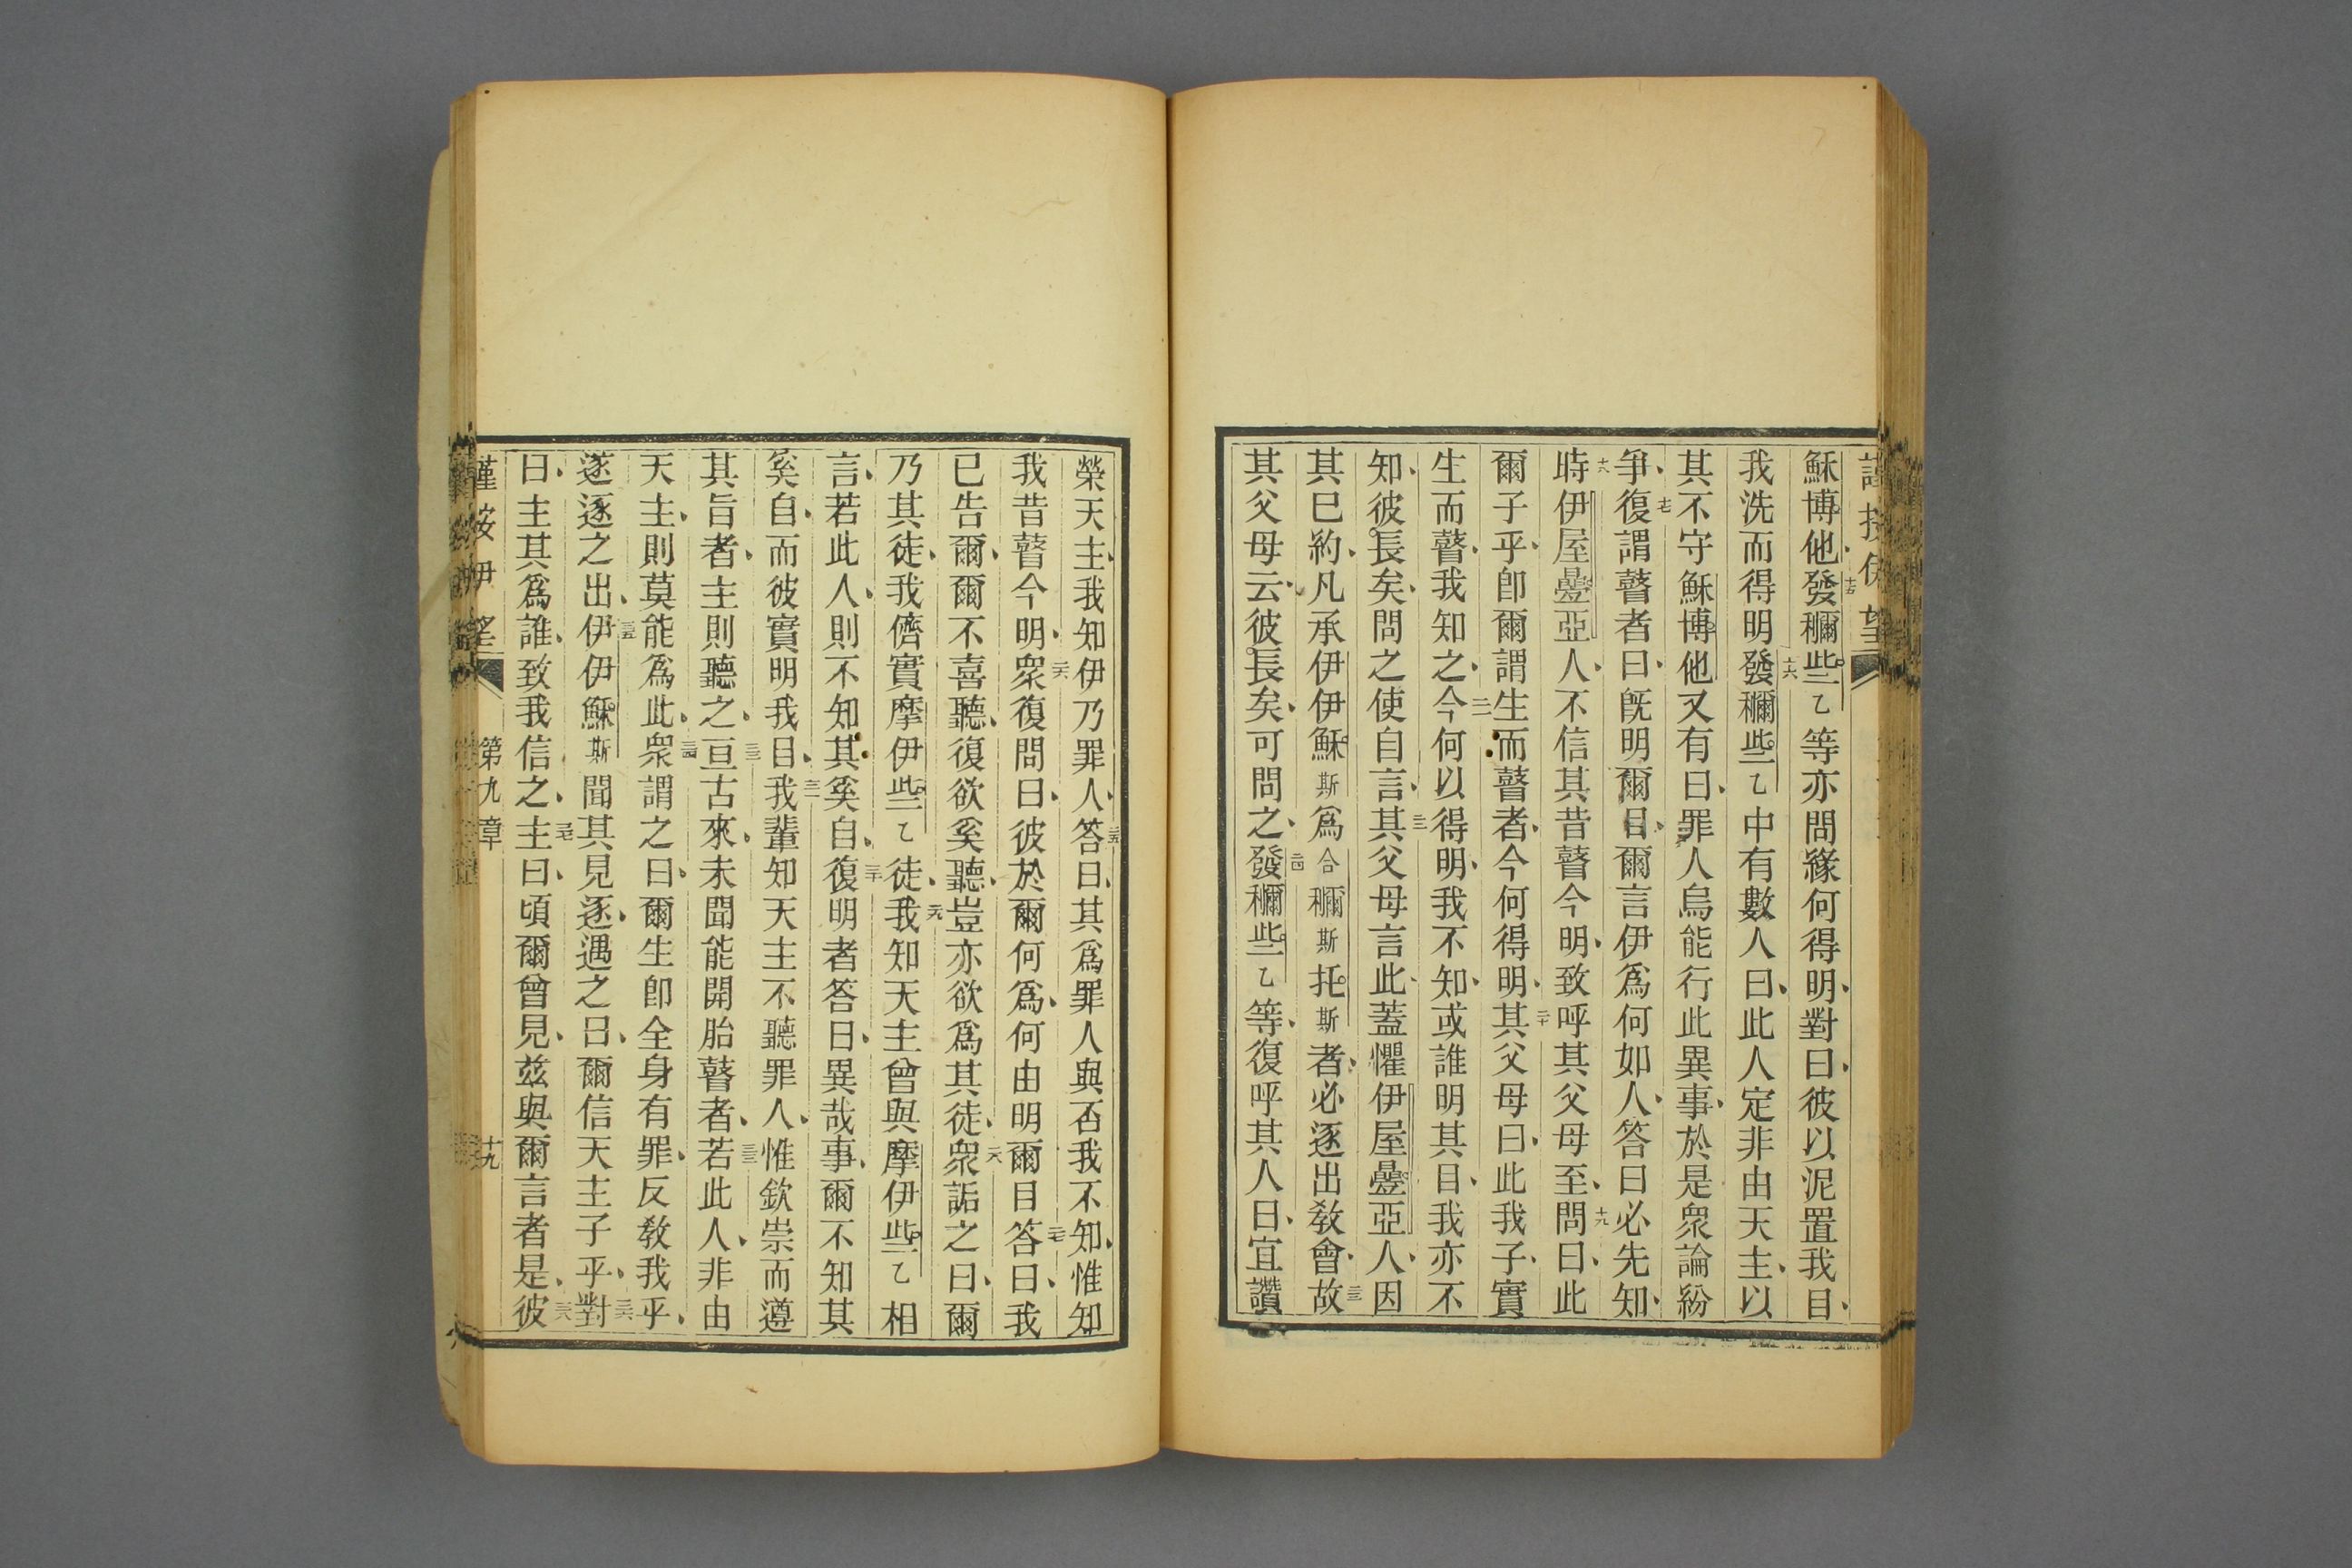 穌博他發穪些乙等亦問緣何得明對曰彼以泥置我目
我洗而得明發穪些乙中有數人曰此人定非由天主以
其不守穌博他又有曰罪人烏能行此異事於是衆論紛
爭復謂瞽者曰旣明爾目爾言伊爲何如人答曰必先知
時伊屋疊亞人不信其昔瞽今明致呼其父母至問曰此
爾子乎卽爾謂生而瞽者今何得明其父母曰此我子實
生而瞽我知之今何以得明我不知或誰明其目我亦不
知彼長矣問之使自言其父母言此蓋懼伊屋疊亞人因
其已約凡承伊伊穌斯爲合穪斯托斯者必逐出敎會故
其父母云彼長矣可問之發穪些乙等復呼其人曰宜讚
榮天主我知伊乃罪人答曰其爲罪人與否我不知惟知
我昔瞽今明衆復問曰彼於爾何爲何由明爾目答曰我
已告爾爾不喜聽復欲奚聽豈亦欲爲其徒衆詬之曰爾
乃其徒我儕實摩伊些乙徒我知天主曾與摩伊些乙相
言若此人則不知其奚自復明者答曰異哉事爾不知其
奚自而彼實明我目我輩知天主不聽罪人惟欽崇而遵
其旨者主則聽之亘古來未聞能開胎瞽者若此人非由
天主則莫能爲此衆謂之曰爾生卽全身有罪反敎我乎
遂逐之出伊伊穌斯聞其見逐遇之曰爾信天主子乎對
曰主其爲誰致我信之主曰頃爾曾見茲與爾言者是彼
第九章 十九